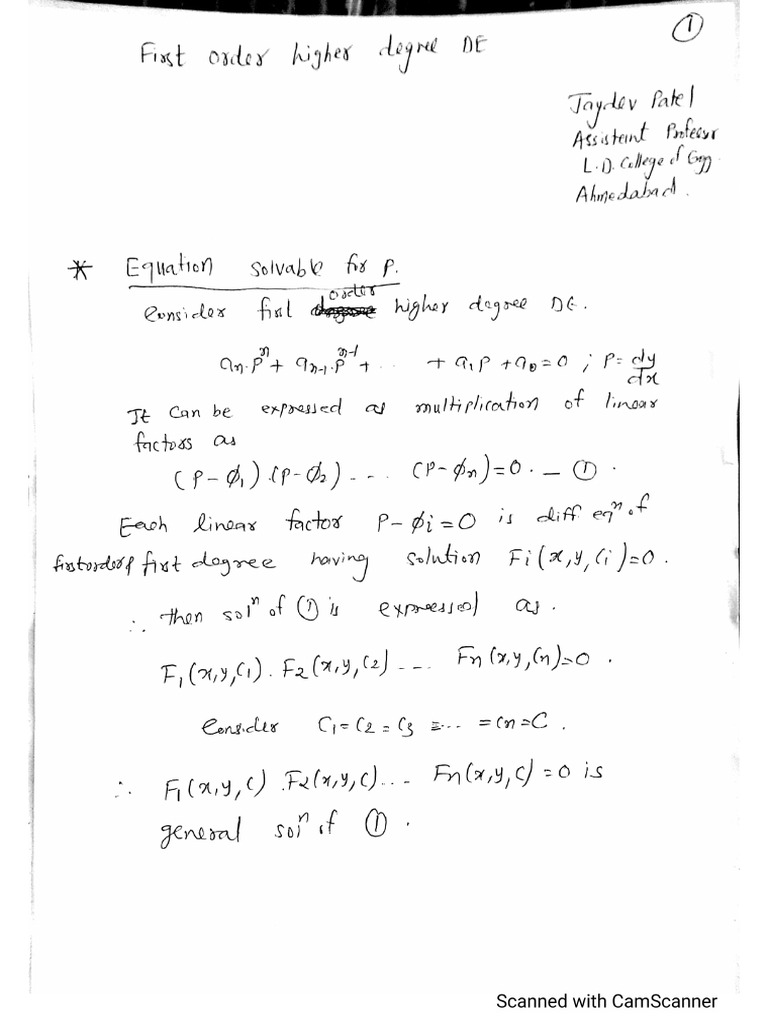 ①
First order higher degree DE
Jaydev Patel
Assisteint Professor
L.D. College of Engg.
Ahmedabad.
* Equation solvable for p.
Consider first order higher degree DE.
aₙ.pⁿ + aₙ₋₁.pⁿ⁻¹ + ... + a₁p + a₀ = 0 ; p = dy/dx
It can be expressed as multiplication of linear
factors as
(p-ϕ₁).(p-ϕ₂).... (p-ϕₙ)=0. — ①.
Each linear factor p-ϕi=0 is diff eqⁿ of
first order & first degree having solution Fi(x,y,Ci)=0.
∴ then solⁿ of ① is expressed as.
F₁(x,y,C₁). F₂(x,y,C₂).... Fn(x,y,Cn)=0.
Consider C₁=C₂=C₃ =... =Cn=C.
∴ F₁(x,y,C).F₂(x,y,C)... Fn(x,y,C)=0 is
general solⁿ of ①.
Scanned with CamScanner